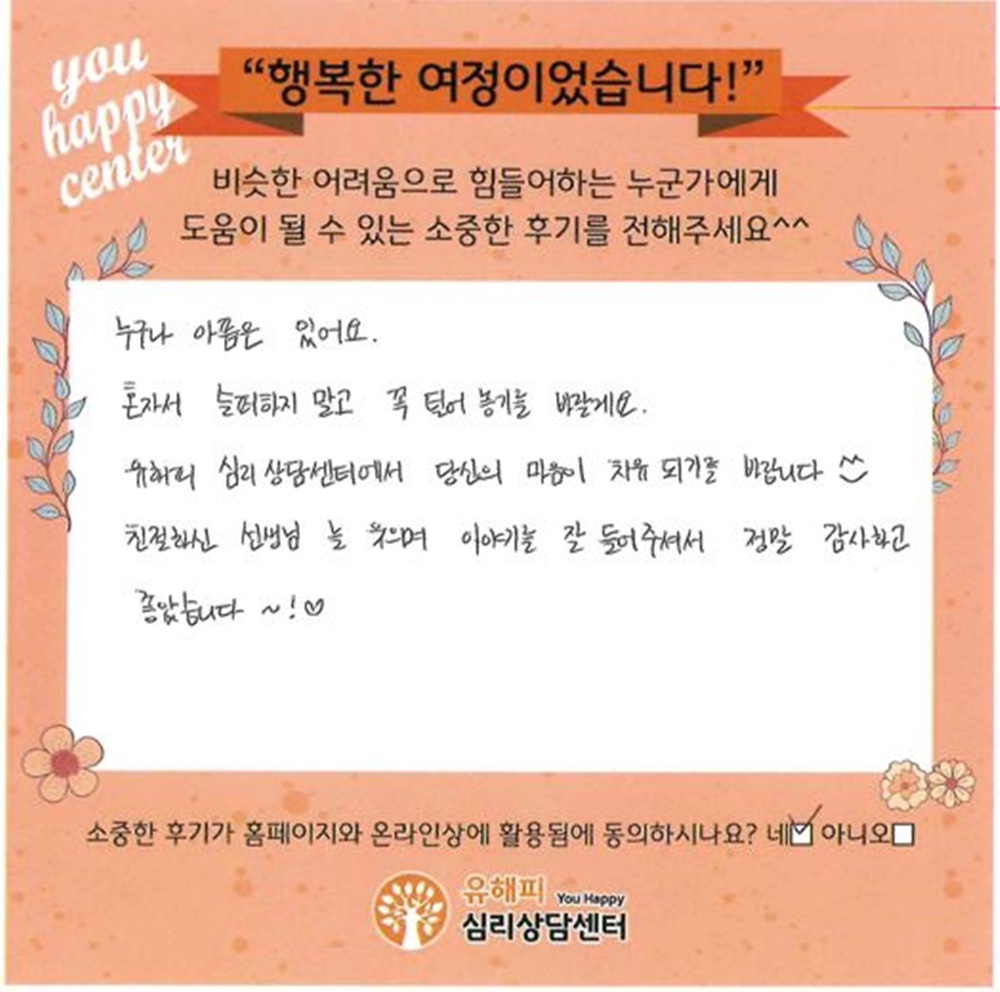 you
happy
center
“행복한 여정이었습니다!”
비슷한 어려움으로 힘들어하는 누군가에게
도움이 될 수 있는 소중한 후기를 전해주세요^^
누구나 아픔은 있어요.
혼자서 슬퍼하지 말고 꼭 털어 놓기를 바랄게요.
유해피 심리상담센터에서 당신의 마음이 치유 되기를 바랍니다 ^^
친절하신 선생님 늘 웃으며 이야기를 잘 들어주셔서 정말 감사하고
좋았습니다 ~!♡
소중한 후기가 홈페이지와 온라인상에 활용됨에 동의하시나요? 네☑ 아니오☐
유해피 You Happy
심리상담센터